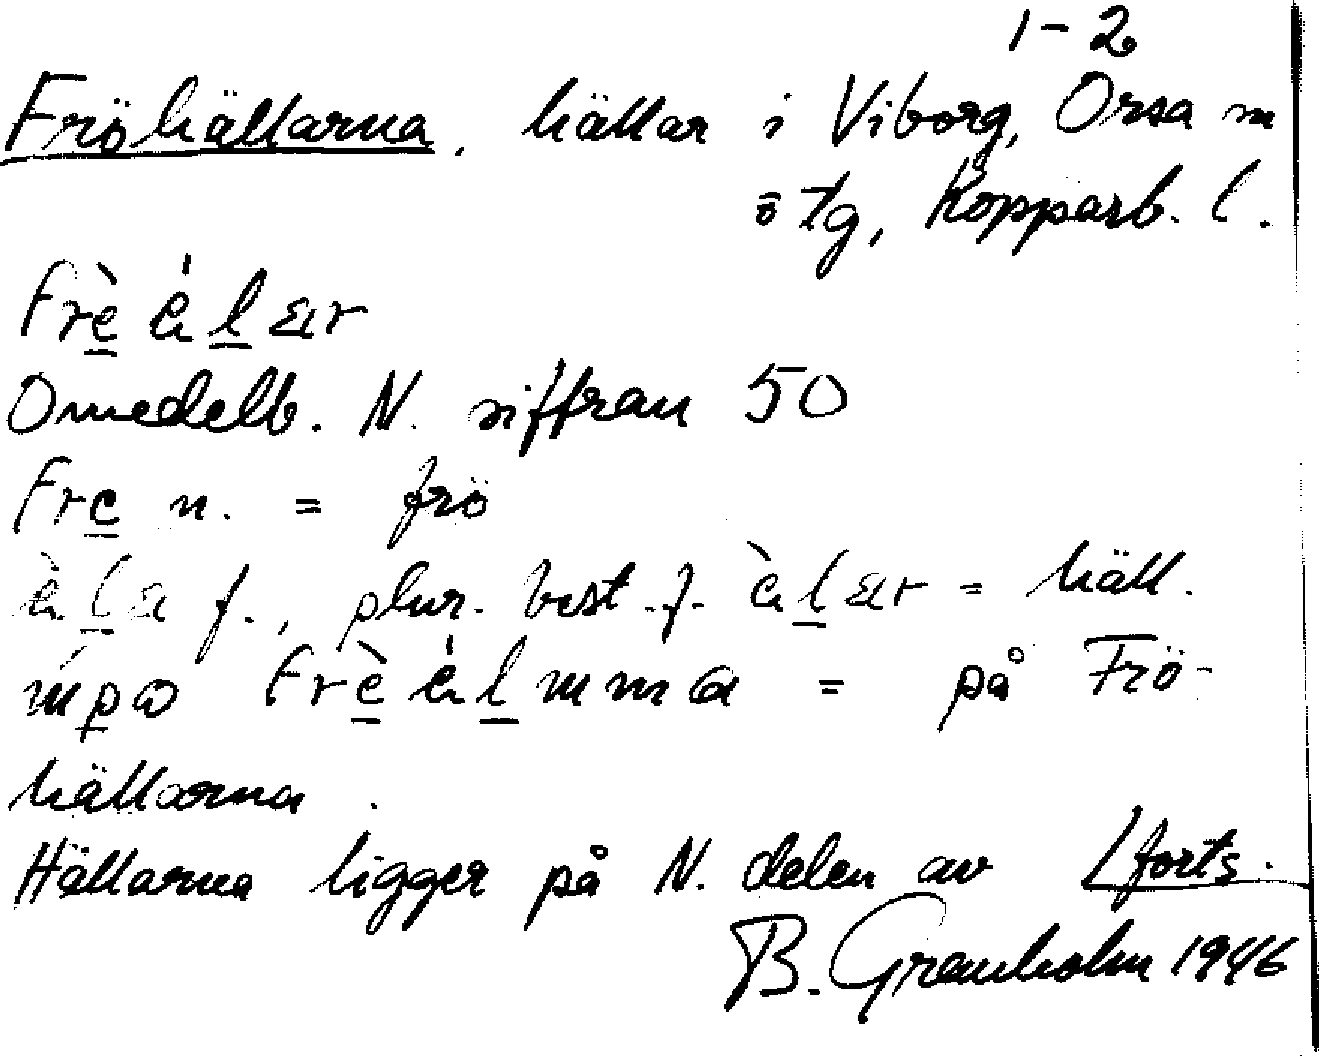 1-2
Fröhällarna, hällar i Viborg, Orsa sn
ö tg, Kopparb. l.
Omedelb. N. siffran 50
Fre n. = frö
f., plur. best. f. = häll.
= på Frö-
hällarna.
Hällarna ligger på N. delen av /forts.
B. Granholm 1946